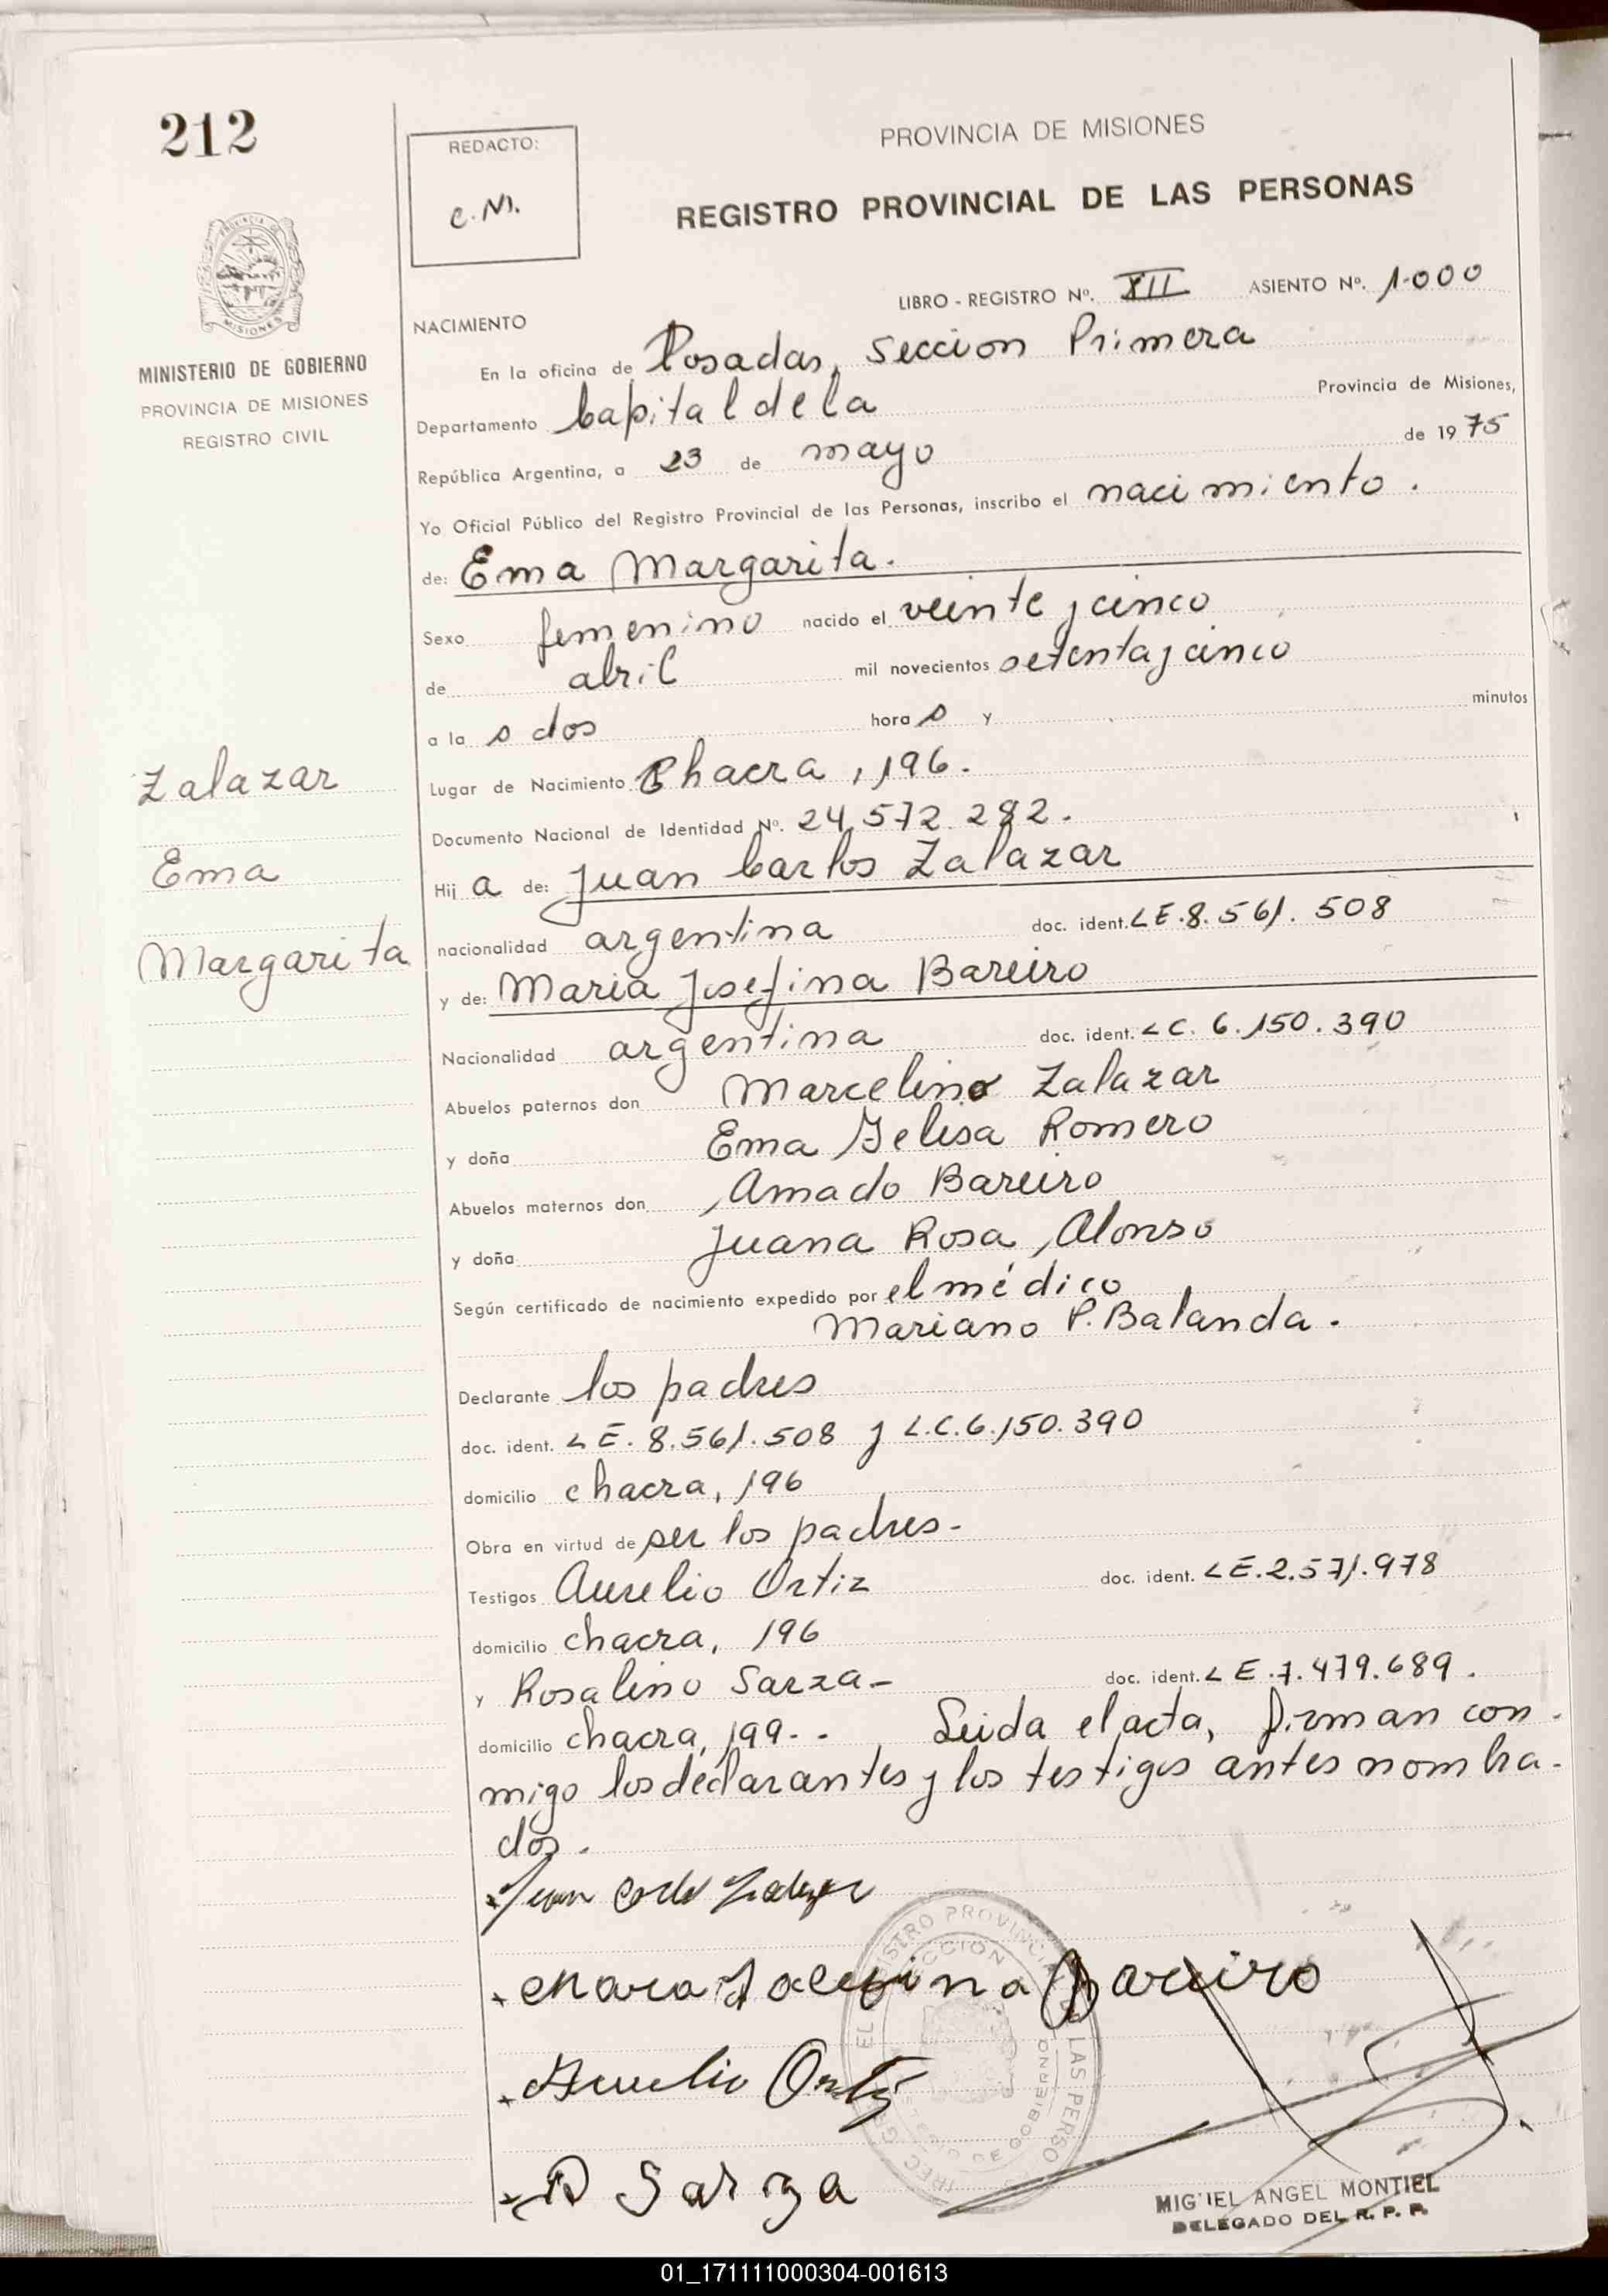 212
REDACTO:
C.M.
PROVINCIA DE MISIONES
REGISTRO PROVINCIAL DE LAS PERSONAS
LIBRO - REGISTRO Nº. XII ASIENTO Nº. 1.000
MISIONES
MINISTERIO DE GOBIERNO
PROVINCIA DE MISIONES
REGISTRO CIVIL
NACIMIENTO
En la oficina de Posadas, Seccion Primera
Departamento Capital de la Provincia de Misiones,
República Argentina, a 23 de mayo de 1975
Yo Oficial Público del Registro Provincial de las Personas, inscribo el nacimiento.
de: Ema Margarita.
Sexo femenino nacido el veinte y cinco
de abril mil novecientos setenta y cinco
a la s dos hora s y minutos
Lugar de Nacimiento Chacra, 196.
Documento Nacional de Identidad Nº. 24.572.282.
Hij a de: Juan Carlos Zalazar
nacionalidad argentina doc. ident. LE.8.561.508
y de: Maria Josefina Bareiro
Nacionalidad argentina doc. ident. LC. 6.150.390
Abuelos paternos don Marcelino Zalazar
y doña Ema Felisa Romero
Abuelos maternos don Amado Bareiro
y doña Juana Rosa Alonso
Según certificado de nacimiento expedido por el médico
Mariano P. Balanda.
Declarante los padres
doc. ident. LE. 8.561.508 y L.C.6.150.390
domicilio chacra, 196
Obra en virtud de ser los padres-
Testigos Aurelio Ortiz doc. ident. LE.2.571.978
domicilio chacra, 196
y Rosalino Sarza- doc. ident. LE.7.479.689.
domicilio chacra, 199-. Leida el acta, firman con-
migo los declarantes y los testigos antes nombra-
dos.
Zalazar
Ema
Margarita
Juan Carlos Zalazar
Bareiro
Aurelio Ortiz
R Sarza
MIGUEL ANGEL MONTIEL
DELEGADO DEL R. P. P.
01_171111000304-001613